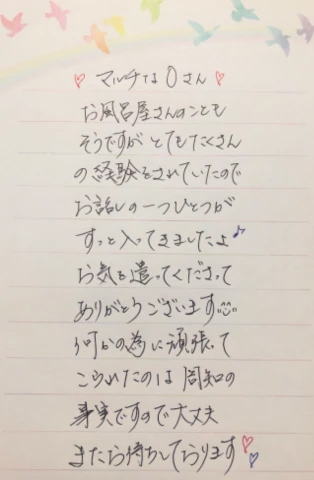 ♡ マルチな O さん ♡
お風呂屋さんのことも
そうですが とてもたくさん
の経験をされていたので
お話しの一つひとつが
すっと入ってきましたよ♪
お気を遣ってくださって
ありがとうございます☺
何かの為に頑張って
こられたのは 周知の
事実ですので大丈夫
またお待ちしております♡♡